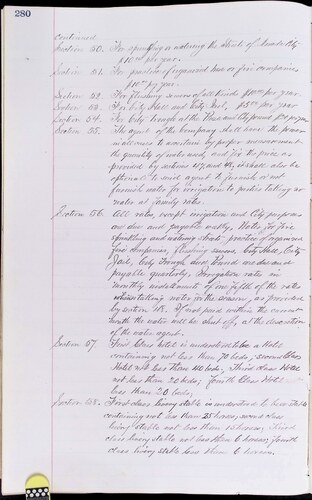 280
continued
Section 50. For sprinkling or watering the Streets of
$10.00 per year.
Section 51. For practice of organized hose or fire companies
$10.00 per year.
Section 52. For flushing sewers of all kinds $10.00 per year
Section 53. For City Hall and City Jail, $5.00 per year
Section 54. For City trough at the Plaza and Claypond $10.00 per year.
Section 55. The agent of the Company shall have the power
in all cases to ascertain by proper measurement
the quantity of water used, and fix the price as
provided by sections 47 and 48, it shall also be
optional to said agent to furnish or not
furnish water for irrigation to parties taking
water at family rates.
Section 56. All rates, except irrigation and City purposes
are due and payable monthly, Water for fire
sprinkling and watering streets practice of organized
fire companies, flushing sewers, City Hall, City
Jail, City Trough, and are due and
payable quarterly, Irrigation rates in
monthly installments of one fifth of the rates
when taking water for the season, as provided
by section 48. If not paid within the current
month the water will be shut off, at the discretion
of the water agent.
Section 57. First Class hotel is understood to be a Hotel
containing not less than 70 beds; second Class
Hotel not less than 40 beds; Third class Hotel
not less than 20 beds; fourth Class Hotel
less than 20 beds.
Section 58. First class livery stable is understood to be a stable
containing not less than 25 horses, second class
livery stable not less than 15 horses; Third
class livery stable not less than 6 horses; fourth
class livery stable less than 6 horses.